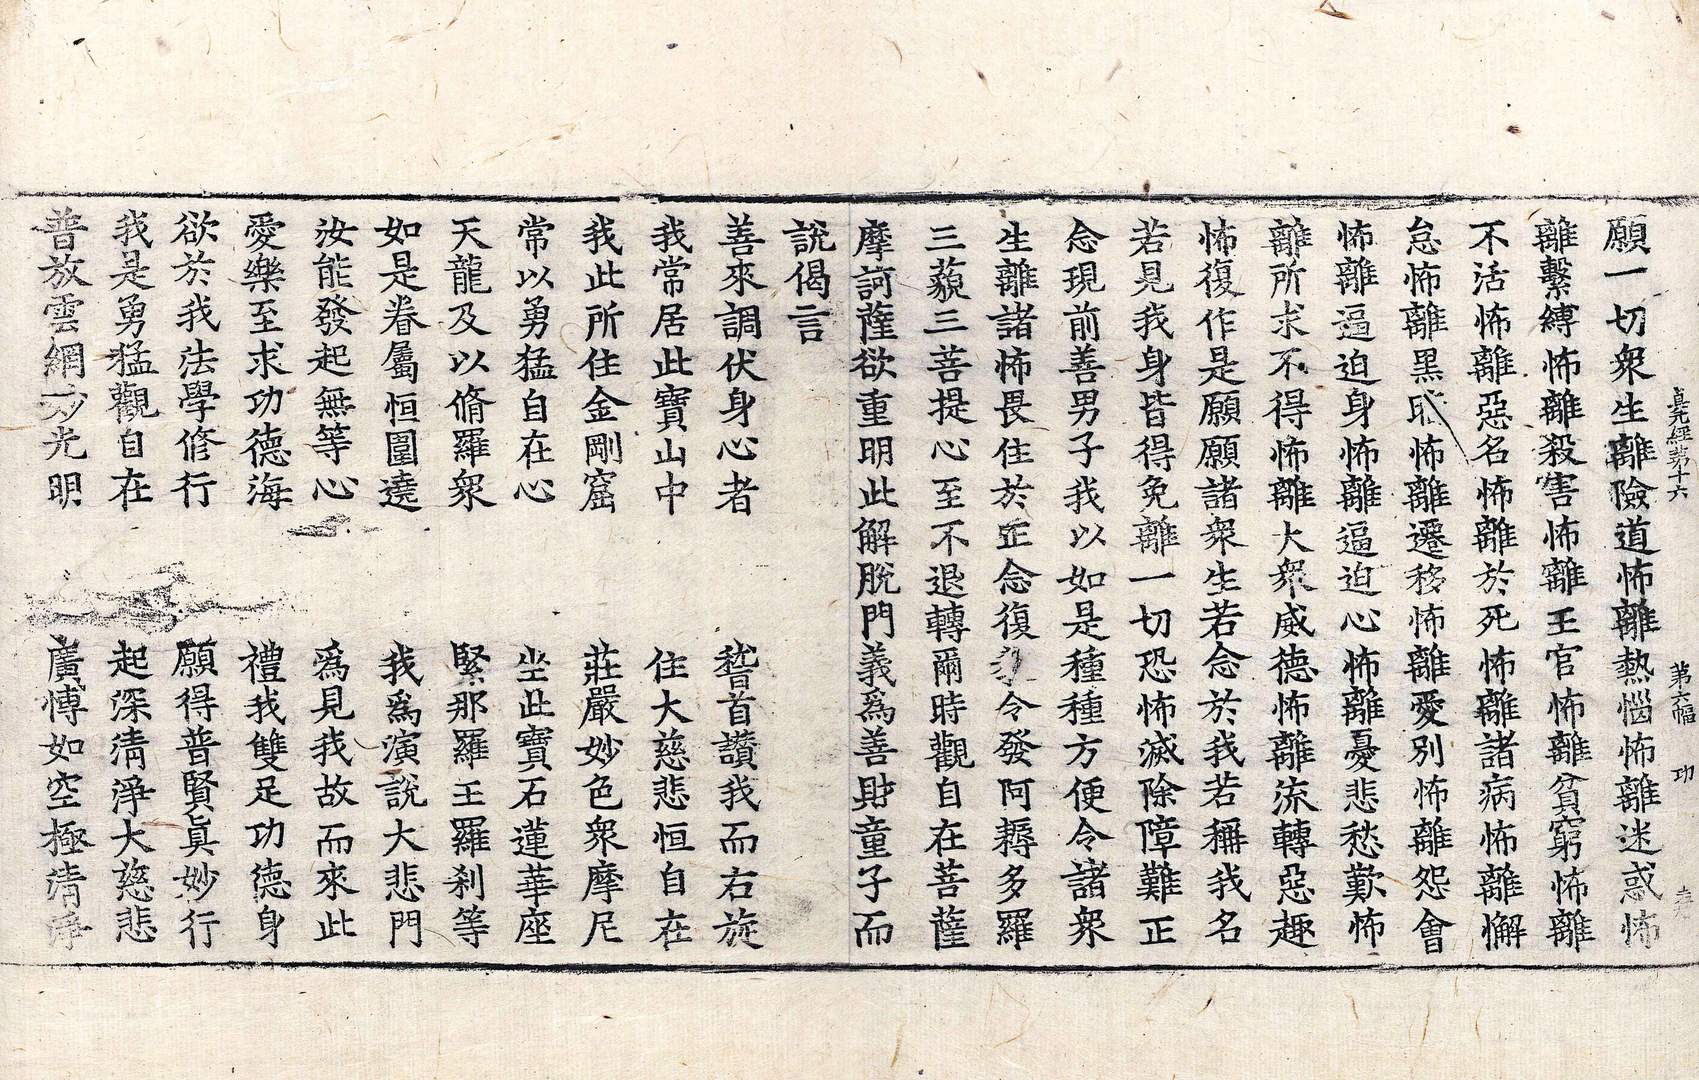 貞元經第十六 第六幅 功
願一切衆生離險道怖離熱惱怖離迷惑怖
離繫縛怖離殺害怖離王官怖離貧窮怖離
不活怖離惡名怖離於死怖離諸病怖離懈
怠怖離黑暗怖離遷移怖離愛別怖離怨會
怖離逼迫身怖離逼迫心怖離憂悲愁歎怖
離所求不得怖離大衆威德怖離流轉惡趣
怖復作是願願諸衆生若念於我若稱我名
若見我身皆得免離一切恐怖滅除障難正
念現前善男子我以如是種種方便令諸衆
生離諸怖畏住於正念復教令發阿耨多羅
三藐三菩提心至不退轉爾時觀自在菩薩
摩訶薩欲重明此解脫門義爲善財童子而
說偈言
善來調伏身心者 稽首讚我而右旋
我常居此寶山中 住大慈悲恒自在
我此所住金剛窟 莊嚴妙色衆摩尼
常以勇猛自在心 坐此寶石蓮華座
天龍及以脩羅衆 緊那羅王羅刹等
如是眷屬恒圍遶 我爲演說大悲門
汝能發起無等心 爲見我故而來此
愛樂至求功德海 禮我雙足功德身
欲於我法學修行 願得普賢眞妙行
我是勇猛觀自在 起深淸淨大慈悲
普放雲網妙光明 廣愽如空極淸淨